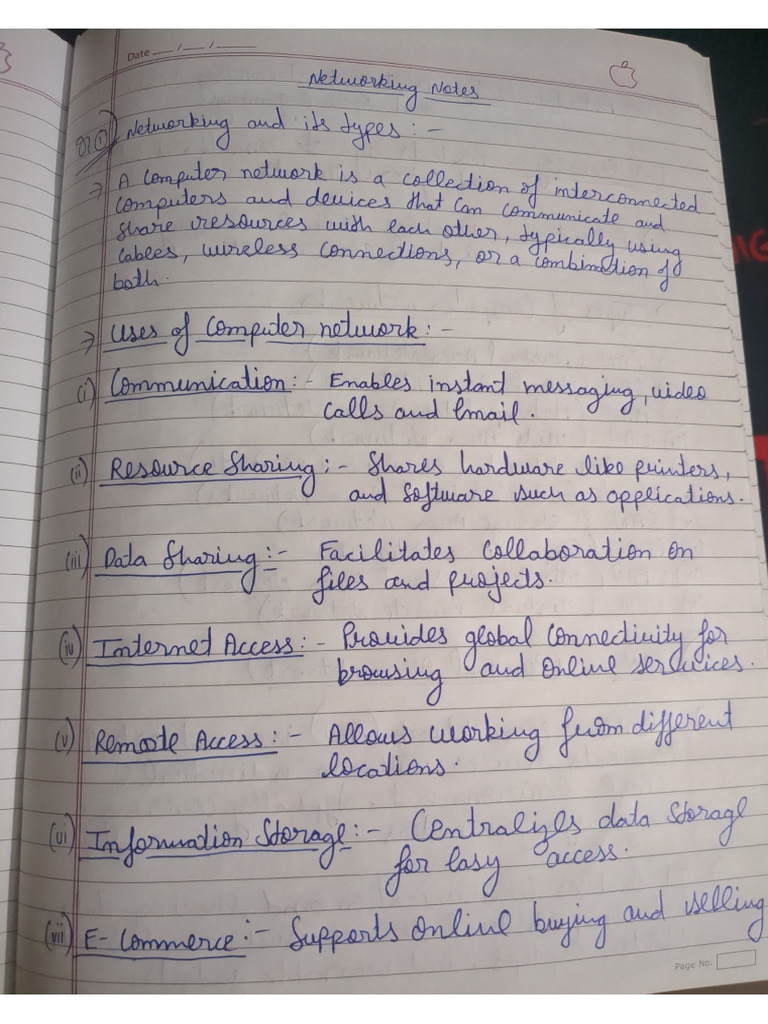 Date __/__/__
Networking Notes
Q1) Networking and its types : -
→ A Computer network is a collection of interconnected
computers and devices that can communicate and
share resources with each other, typically using
cables, wireless connections, or a combination of
both.
→ Uses of Computer network : -
(i) Communication : - Enables instant messaging, video
calls and Email.
(ii) Resource Sharing : - Shares hardware like printers,
and software such as applications.
(iii) Data Sharing : - Facilitates Collaboration on
files and projects.
(iv) Internet Access : - Provides global Connectivity for
browsing and online services.
(v) Remote Access : - Allows working from different
locations.
(vi) Information Storage : - Centralizes data storage
for easy access.
(vii) E-Commerce : - Supports Online buying and selling
Page No.